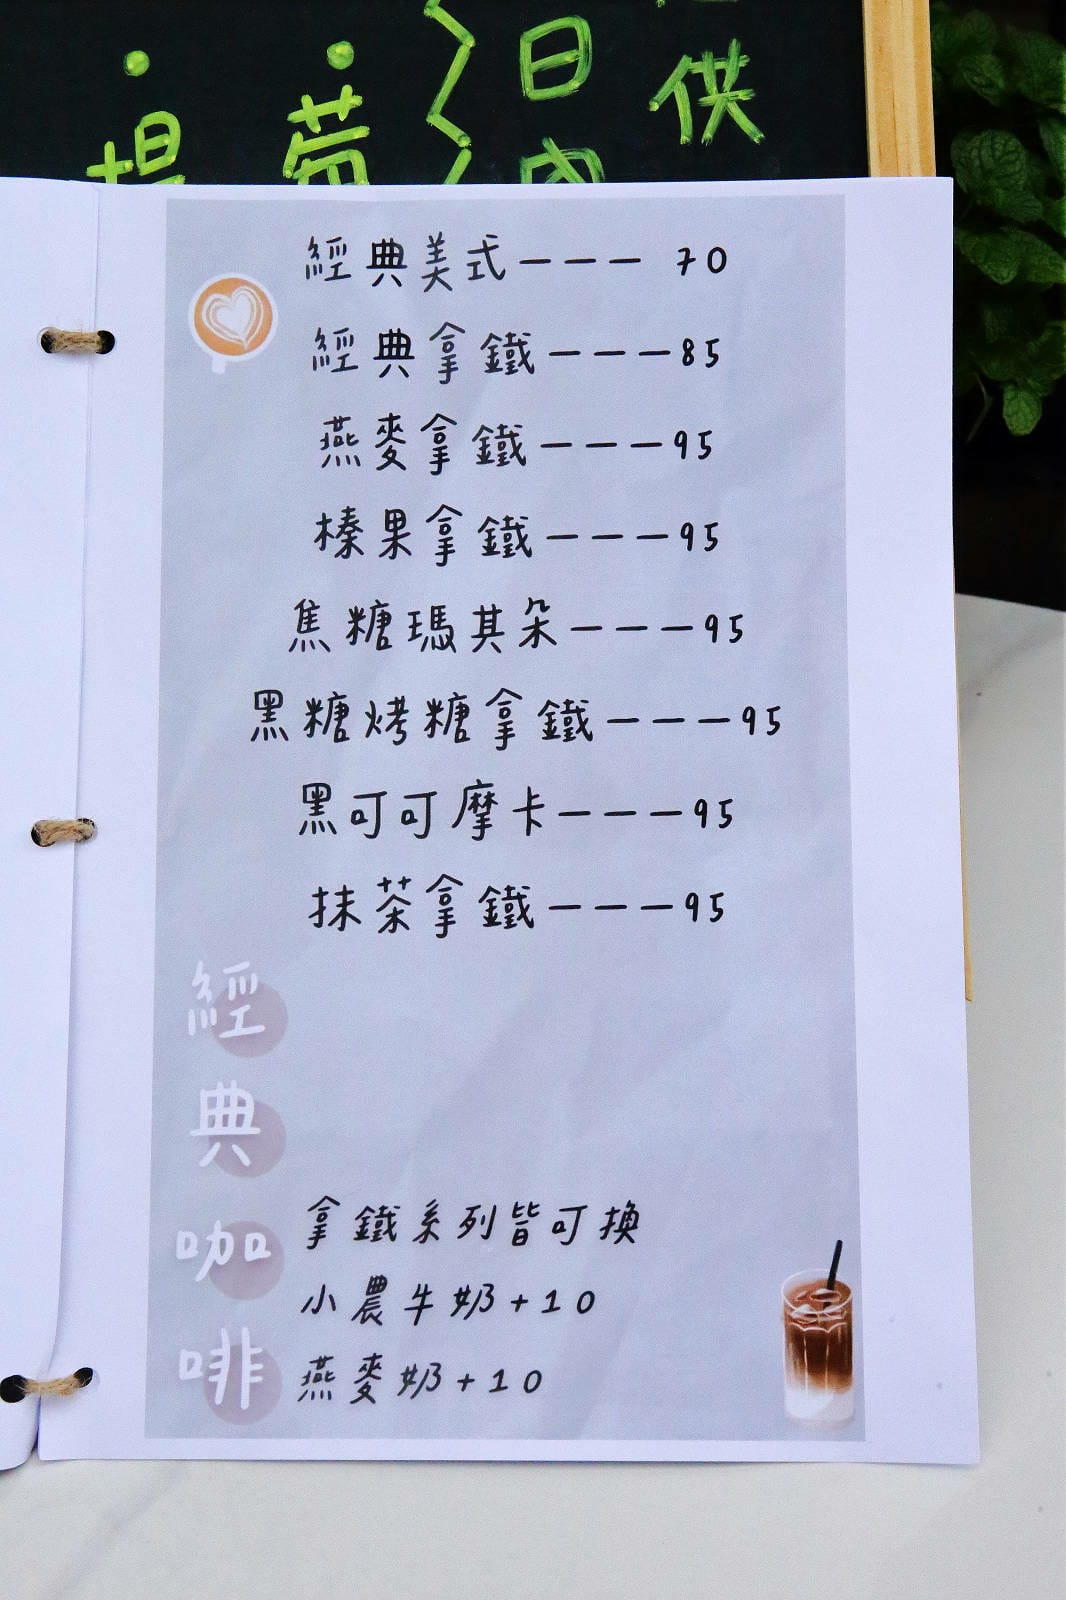 日供
經典美式--- 70
經典拿鐵---85
燕麥拿鐵---95
榛果拿鐵---95
焦糖瑪其朵---95
黑糖烤糖拿鐵---95
黑可可摩卡---95
抹茶拿鐵---95
經典咖啡
拿鐵系列皆可換
小農牛奶+10
燕麥奶+10